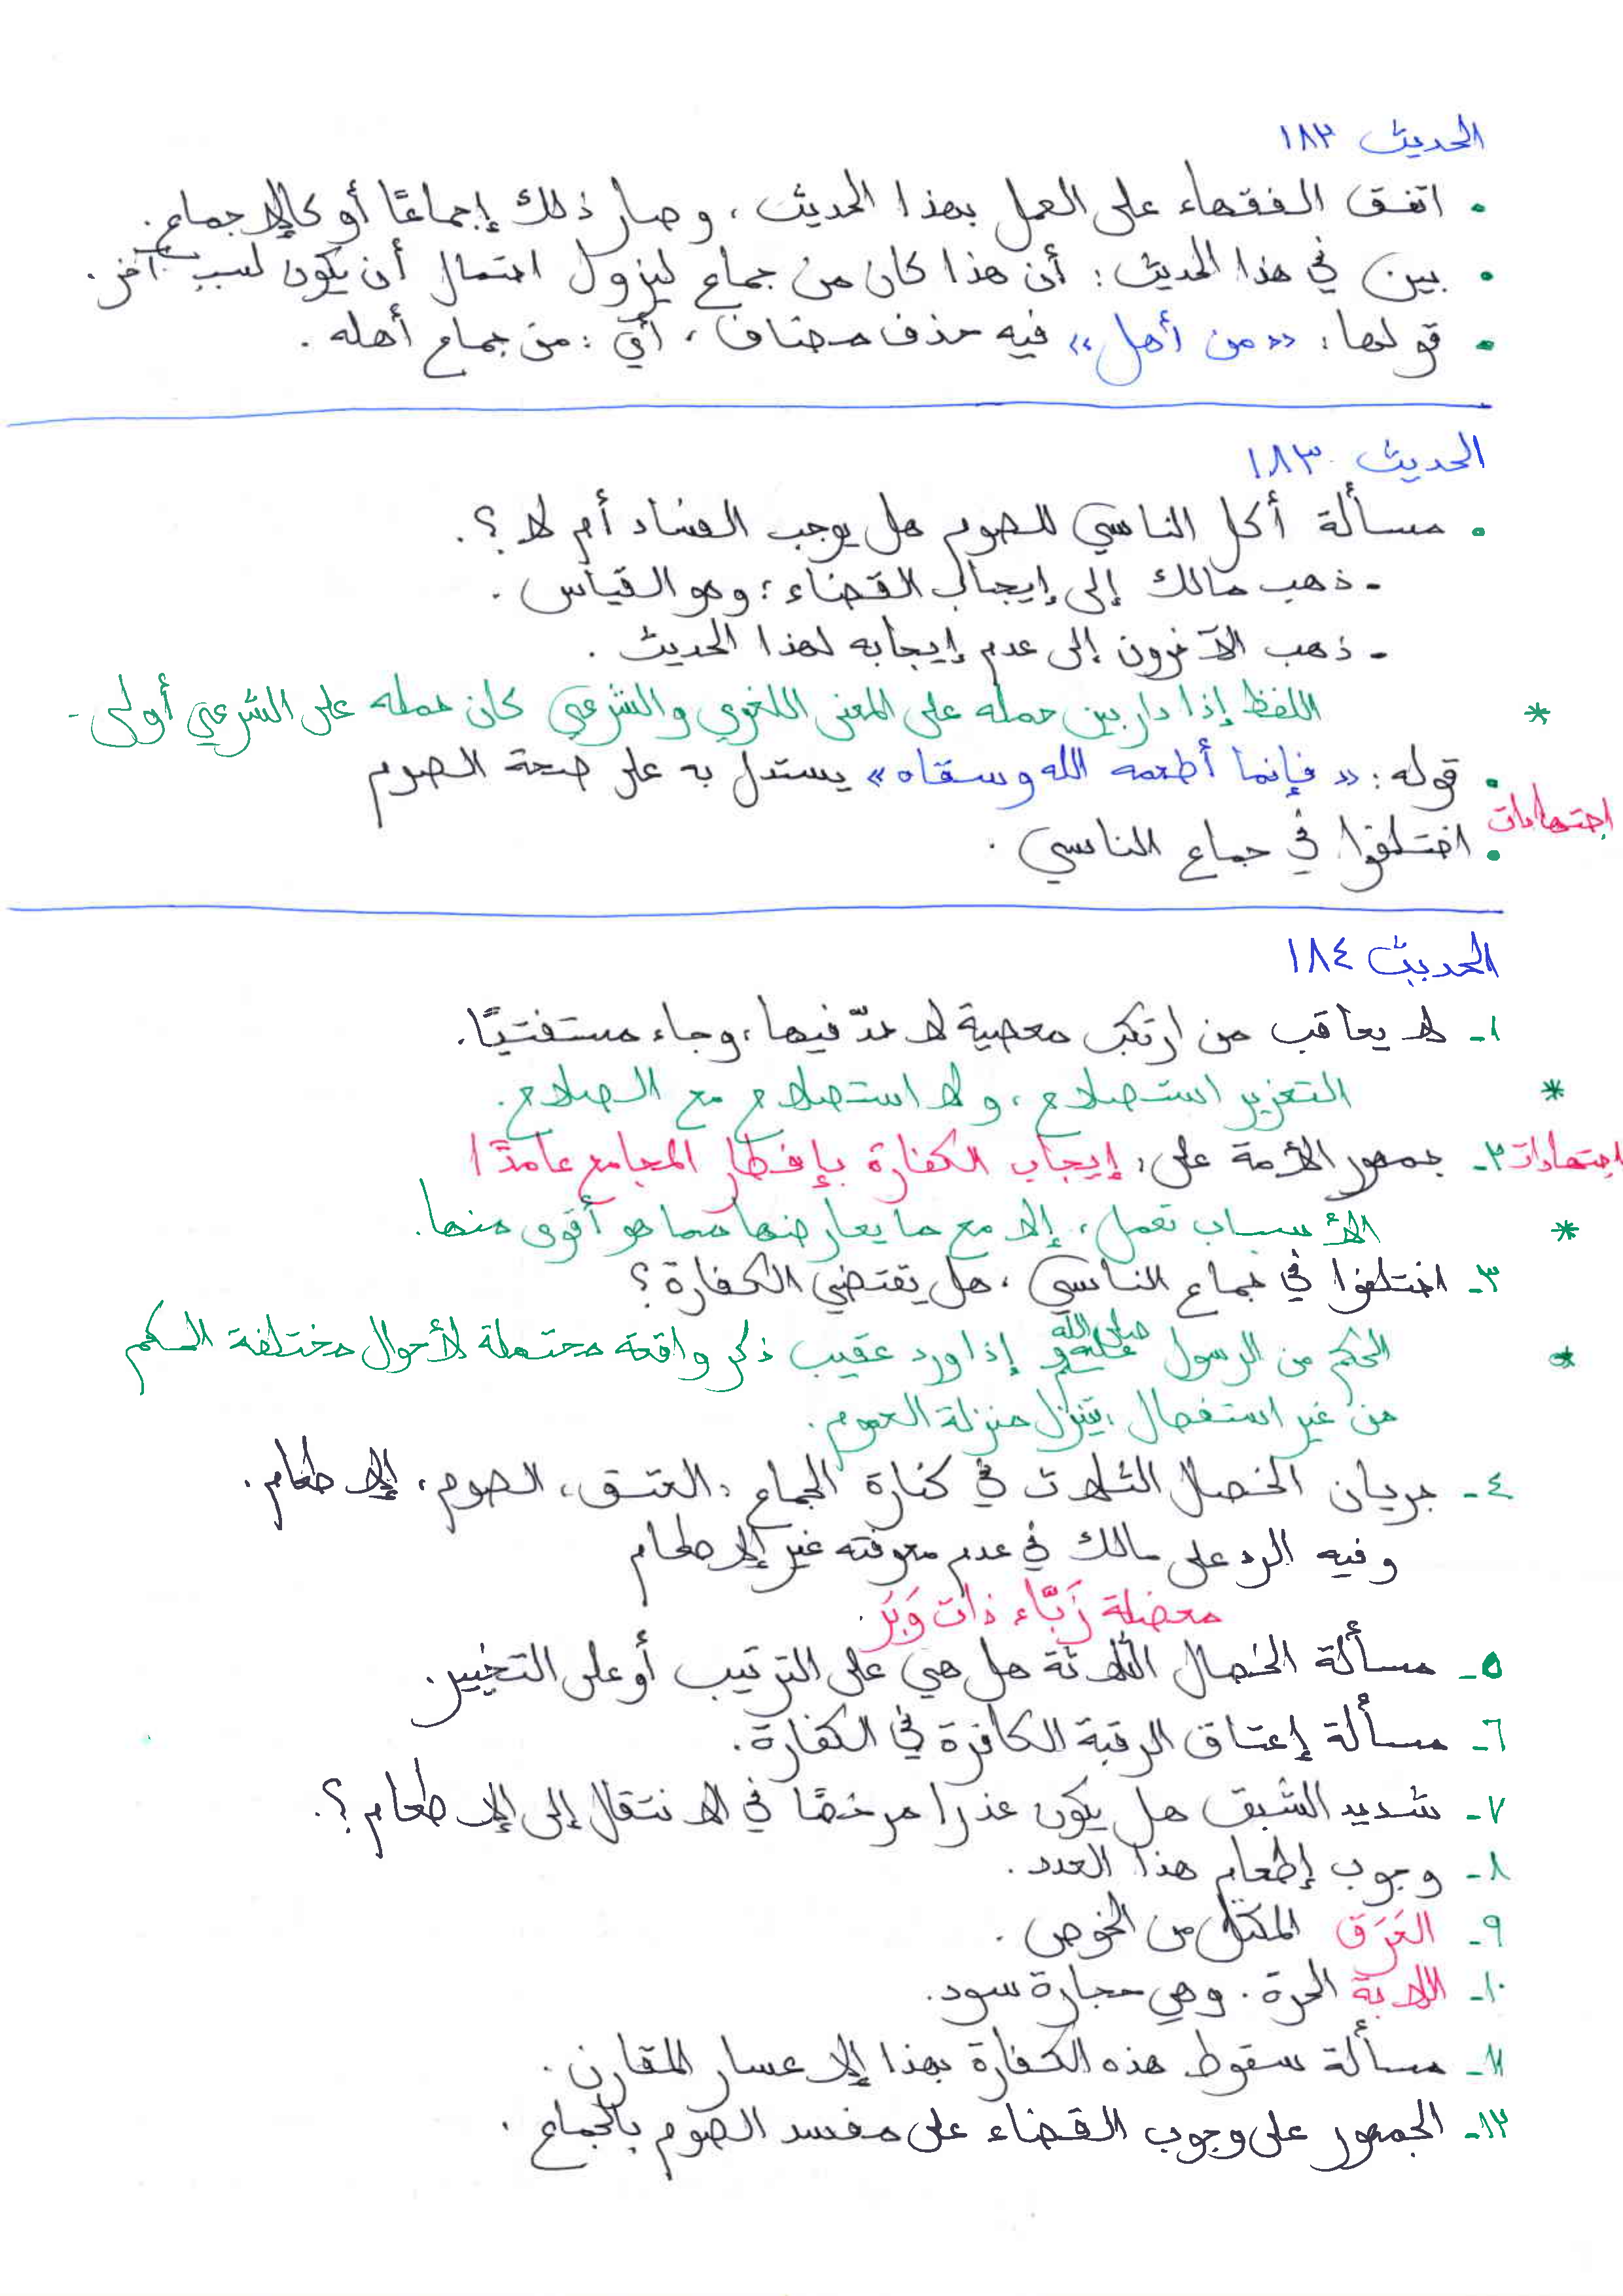 الحديث ١٨٢
• اتفق الفقهاء على العمل بهذا الحديث، وصار ذلك إجماعًا أو كالإجماع.
• بين في هذا الحديث: أن هذا كان من جماع ليزول احتمال أن يكون لسبب آخر.
• قولها: «من أهل» فيه حذف مضاف، أي: من جماع أهله.
الحديث ١٨٣
• مسألة أكل الناسي للصوم هل يوجب الفساد أم لا؟.
- ذهب مالك إلى إيجاب القضاء؛ وهو القياس.
- ذهب الآخرون إلى عدم إيجابه لهذا الحديث.
* اللفظ إذا دار بين حمله على المعنى اللغوي والشرعي كان حمله على الشرعي أولى.
• قوله: «فإنما أطعمه الله وسقاه» يستدل به على صحة الصوم
اجتهادات
• اختلفوا في جماع الناسي.
الحديث ١٨٤
١- لا يعاقب من ارتكب معصية لا حدّ فيها، وجاء مستفتيًا.
* التعزير استصلاح، ولا استصلاح مع الصلاح.
اجتهادات ٢- جمهور الأمة على: إيجاب الكفارة بإفطار المجامع عامدًا
* الأسباب تعمل، إلا مع ما يعارضها مما هو أقوى منها.
٣- اختلفوا في جماع الناسي، هل يقتضي الكفارة؟
* الحكم من الرسول صلى الله عليه وسلم إذا ورد عقيب ذكر واقعة محتملة لأحوال مختلفة الحكم
من غير استفصال، يتنزل منزلة العموم.
٤- جريان الخصال الثلاث في كفارة الجماع: العتق، الصوم، الإطعام.
وفيه الرد على مالك في عدم معرفته غير الإطعام
معضلة زَبَّاء ذات وَبَر.
٥- مسألة الخصال الثلاثة هل هي على الترتيب أو على التخيير.
٦- مسألة إعتاق الرقبة الكافرة في الكفارة.
٧- شديد الشبق هل يكون عذرا مرخصًا في الانتقال إلى الإطعام؟.
٨- وجوب إطعام هذا العدد.
٩- العَرَق المكتل من الخوص.
١٠- اللابة الحرة. وهي حجارة سود.
١١- مسألة سقوط هذه الكفارة بهذا الإعسار المقارن.
١٢- الجمهور على وجوب القضاء على مفسد الصوم بالجماع.